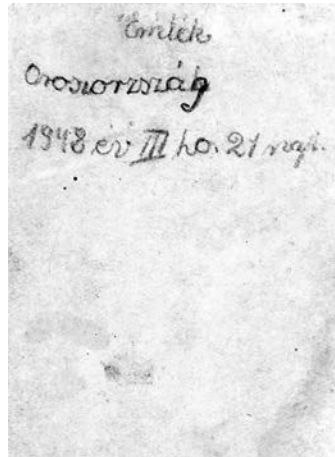 Emlék
Oroszország
1948 év III hó. 21 napi.